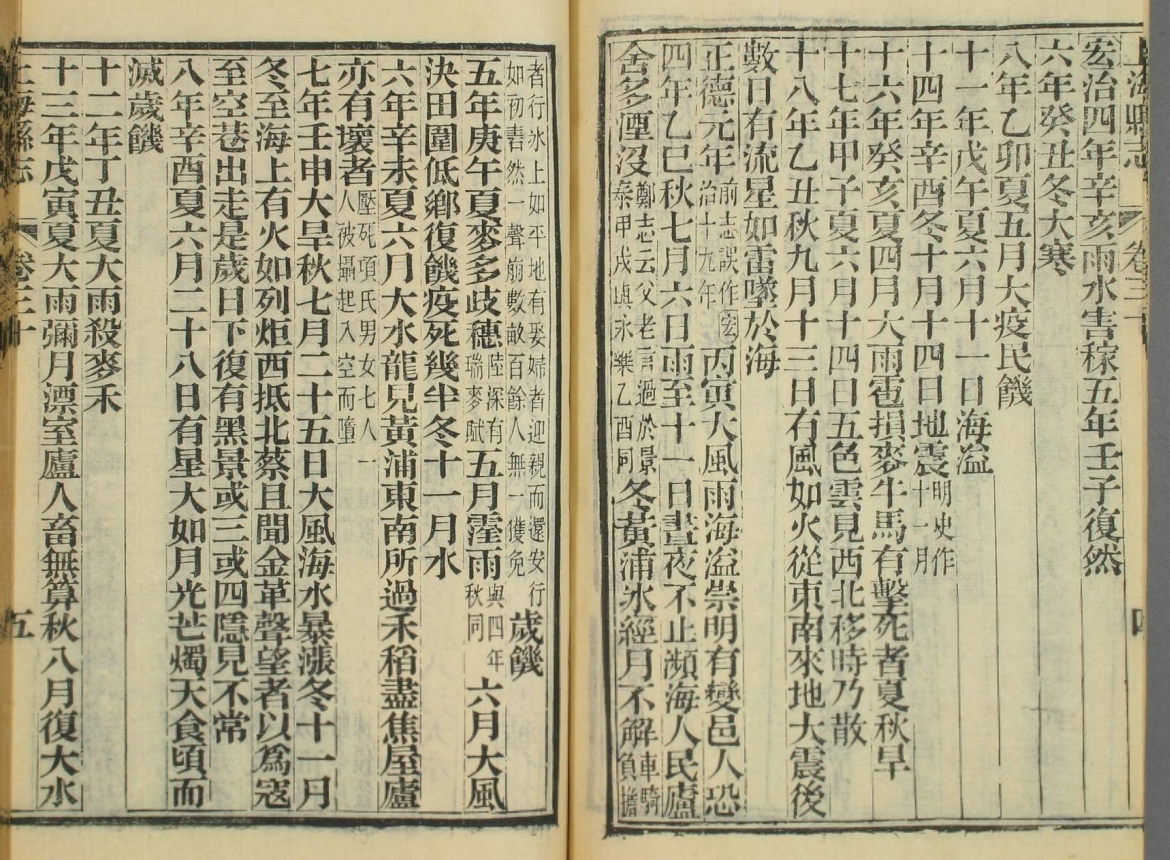 上海縣志 卷三十 四
宏治四年辛亥雨水害稼五年壬子復然
六年癸丑冬大寒
八年乙卯夏五月大疫民饑
十一年戊午夏六月十一日海溢
十四年辛酉冬十月十四日地震明史作十一月
十六年癸亥夏四月大雨雹損麥牛馬有擊死者夏秋旱
十七年甲子夏六月十四日五色雲見西北移時乃散
十八年乙丑秋九月十三日有風如火從東南來地大震後
數日有流星如雷墜於海
正德元年前志誤作宏治十九年丙寅大風雨海溢崇明有變邑人恐
四年乙巳秋七月六日雨至十一日晝夜不止瀕海人民廬
舍多湮沒鄭志云父老言過於景泰甲戌與永樂乙酉同冬黃浦冰經月不解車騎負擔
者行冰上如平地有娶婦者迎親而還安行如初砉然一聲崩數畝百餘人無一獲免歲饑
五年庚午夏麥多歧穗陸深有瑞麥賦五月霪雨與四年秋同六月大風
決田圍低鄉復饑疫死幾半冬十一月水
六年辛未夏六月大水龍見黃浦東南所過禾稻盡焦屋廬
亦有壞者壓死項氏男女七人一人被攝起入空而墮
七年壬申大旱秋七月二十五日大風海水暴漲冬十一月
冬至海上有火如列炬西抵北蔡且聞金革聲望者以爲寇
至空巷出走是歲日下復有黑景或三或四隱見不常
八年辛酉夏六月二十八日有星大如月光芒燭天食頃而
滅歲饑
十二年丁丑夏大雨殺麥禾
十三年戊寅夏大雨彌月漂室廬人畜無算秋八月復大水
上海縣志 卷三十 五